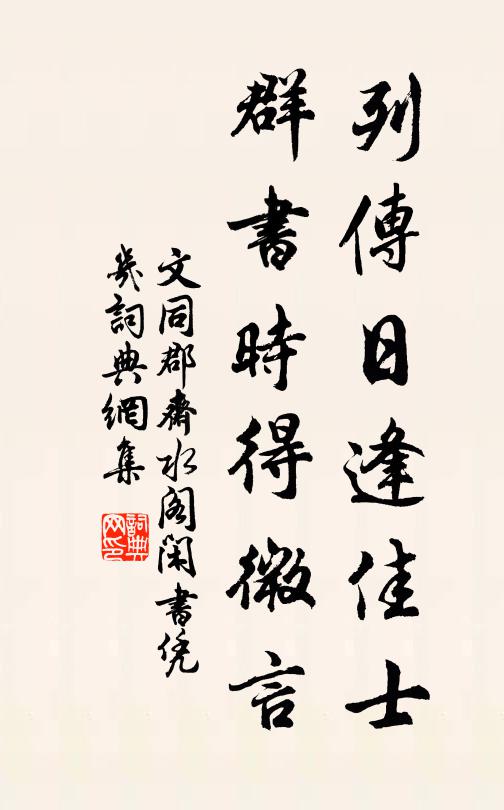 列傳日逢佳士
群書時得微言
文同郡齋水阁閑書凭
几詞典網集
詞典网印